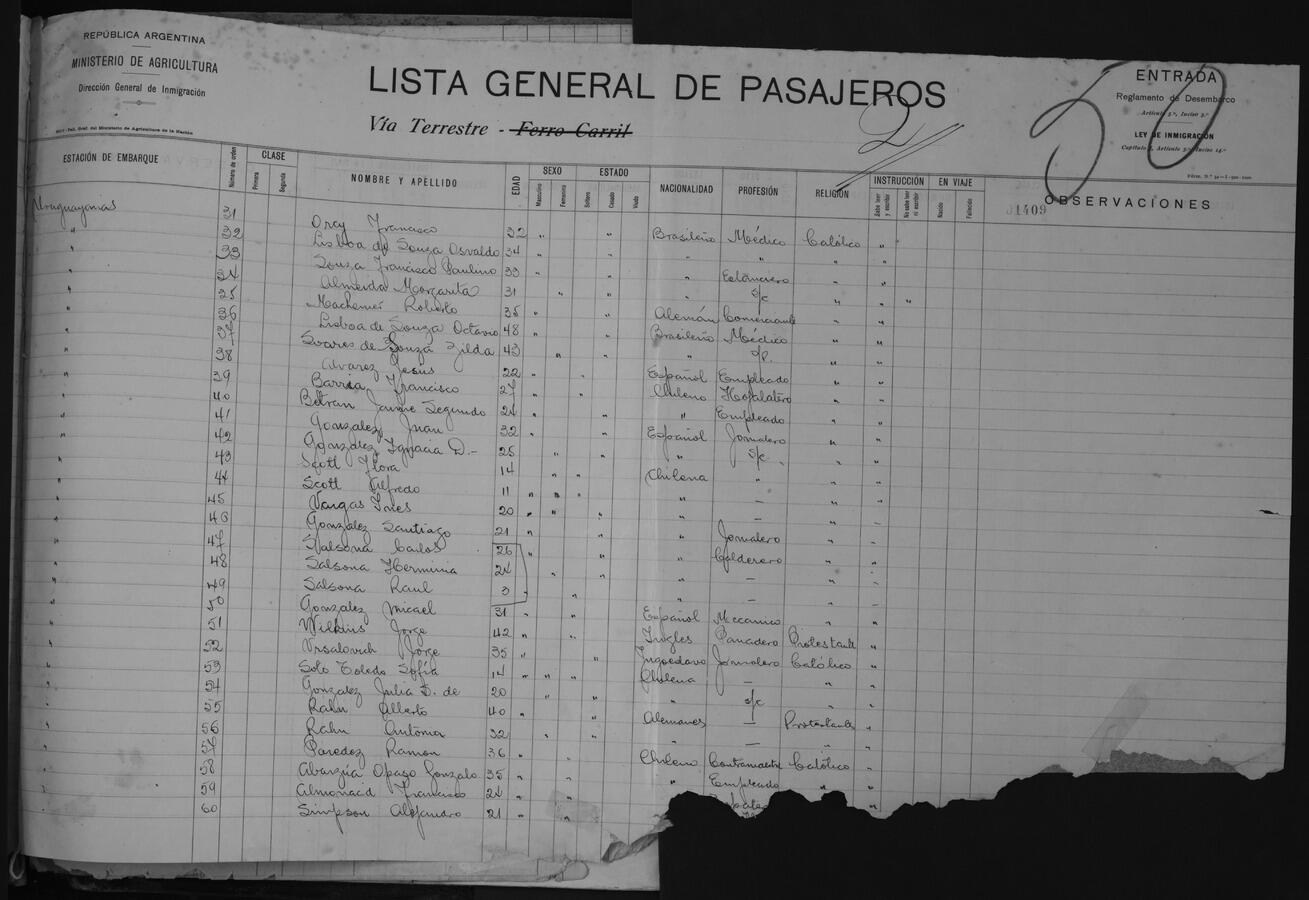 REPÚBLICA ARGENTINA
MINISTERIO DE AGRICULTURA
Dirección General de Inmigración
LISTA GENERAL DE PASAJEROS
Vía Terrestre - Ferro Carril
2
50
ENTRADA
Reglamento de Desembarco
Artículo 5º, Inciso 3º
LEY DE INMIGRACIÓN
ESTACIÓN DE EMBARQUE Número de orden CLASE Primera Segunda NOMBRE Y APELLIDO EDAD SEXO Masculino Femenino ESTADO Soltero Casado Viudo NACIONALIDAD PROFESIÓN RELIGIÓN INSTRUCCIÓN Sabe leer y escribir No sabe leer ni escribir EN VIAJE Nacido Fallecido OBSERVACIONES
31409
Uruguayanas 31 Orcy Francisco 32 " " Brasileño Médico Católico "
" 32 Lisboa de Souza Osvaldo 34 " " " " " "
" 33 Souza Francisco Paulino 33 " " " Estanciero " "
" 34 Almeida Margarita 31 " " " s/c " "
" 35 Machemer Roberto 35 " " Alemán Comerciante " "
" 36 Lisboa de Souza Octavio 48 " " Brasileño Médico " "
" 37 Soares de Souza Zilda 43 " " " s/p. " "
" 38 Alvarez Jesús 22 " " Español Empleado " "
" 39 Barria Francisco 27 " " Chileno Hojalatero " "
" 40 Beltran Jaime Segundo 24 " " " Empleado " "
" 41 Gonzalez Juan 32 " " Español Jornalero " "
" 42 Gonzalez Ignacia D.- 25 " " " s/c " "
" 43 Scott Flora 14 " " Chilena " " "
" 44 Scott Alfredo 11 " " " " — " "
" 45 Vargas Ines 20 " " " " — " —
" 46 Gonzalez Santiago 21 " " " Jornalero " "
" 47 Salsona Carlos 26 " " " Calderero " "
" 48 Salsona Herminia 24 " " " — " "
" 49 Salsona Raul 3 " " " — " —
" 50 Gonzalez Micael 31 " " Español Mecanico " "
" 51 Wilkins Jorge 42 " " Ingles Panadero Protestante "
" 52 Ursalovich Jorge 35 " " Jugoedavo Jornalero Católico "
" 53 Soto Toledo Sofía 14 " " " Chilena — " "
" 54 Gonzalez Julia D. de 20 " " " s/c " "
" 55 Rahn Alberto 40 " " Alemanes — Protestante "
" 56 Rahn Antonia 32 " " " — " "
" 57 Paredez Ramon 36 " " Chileno Contramaestre Católico "
" 58 Abarzúa Opaso Gonzalo 35 " " " Empleado " "
" 59 Almonacd Francisco 24 " "
" 60 Simpson Alejandro 21 " "